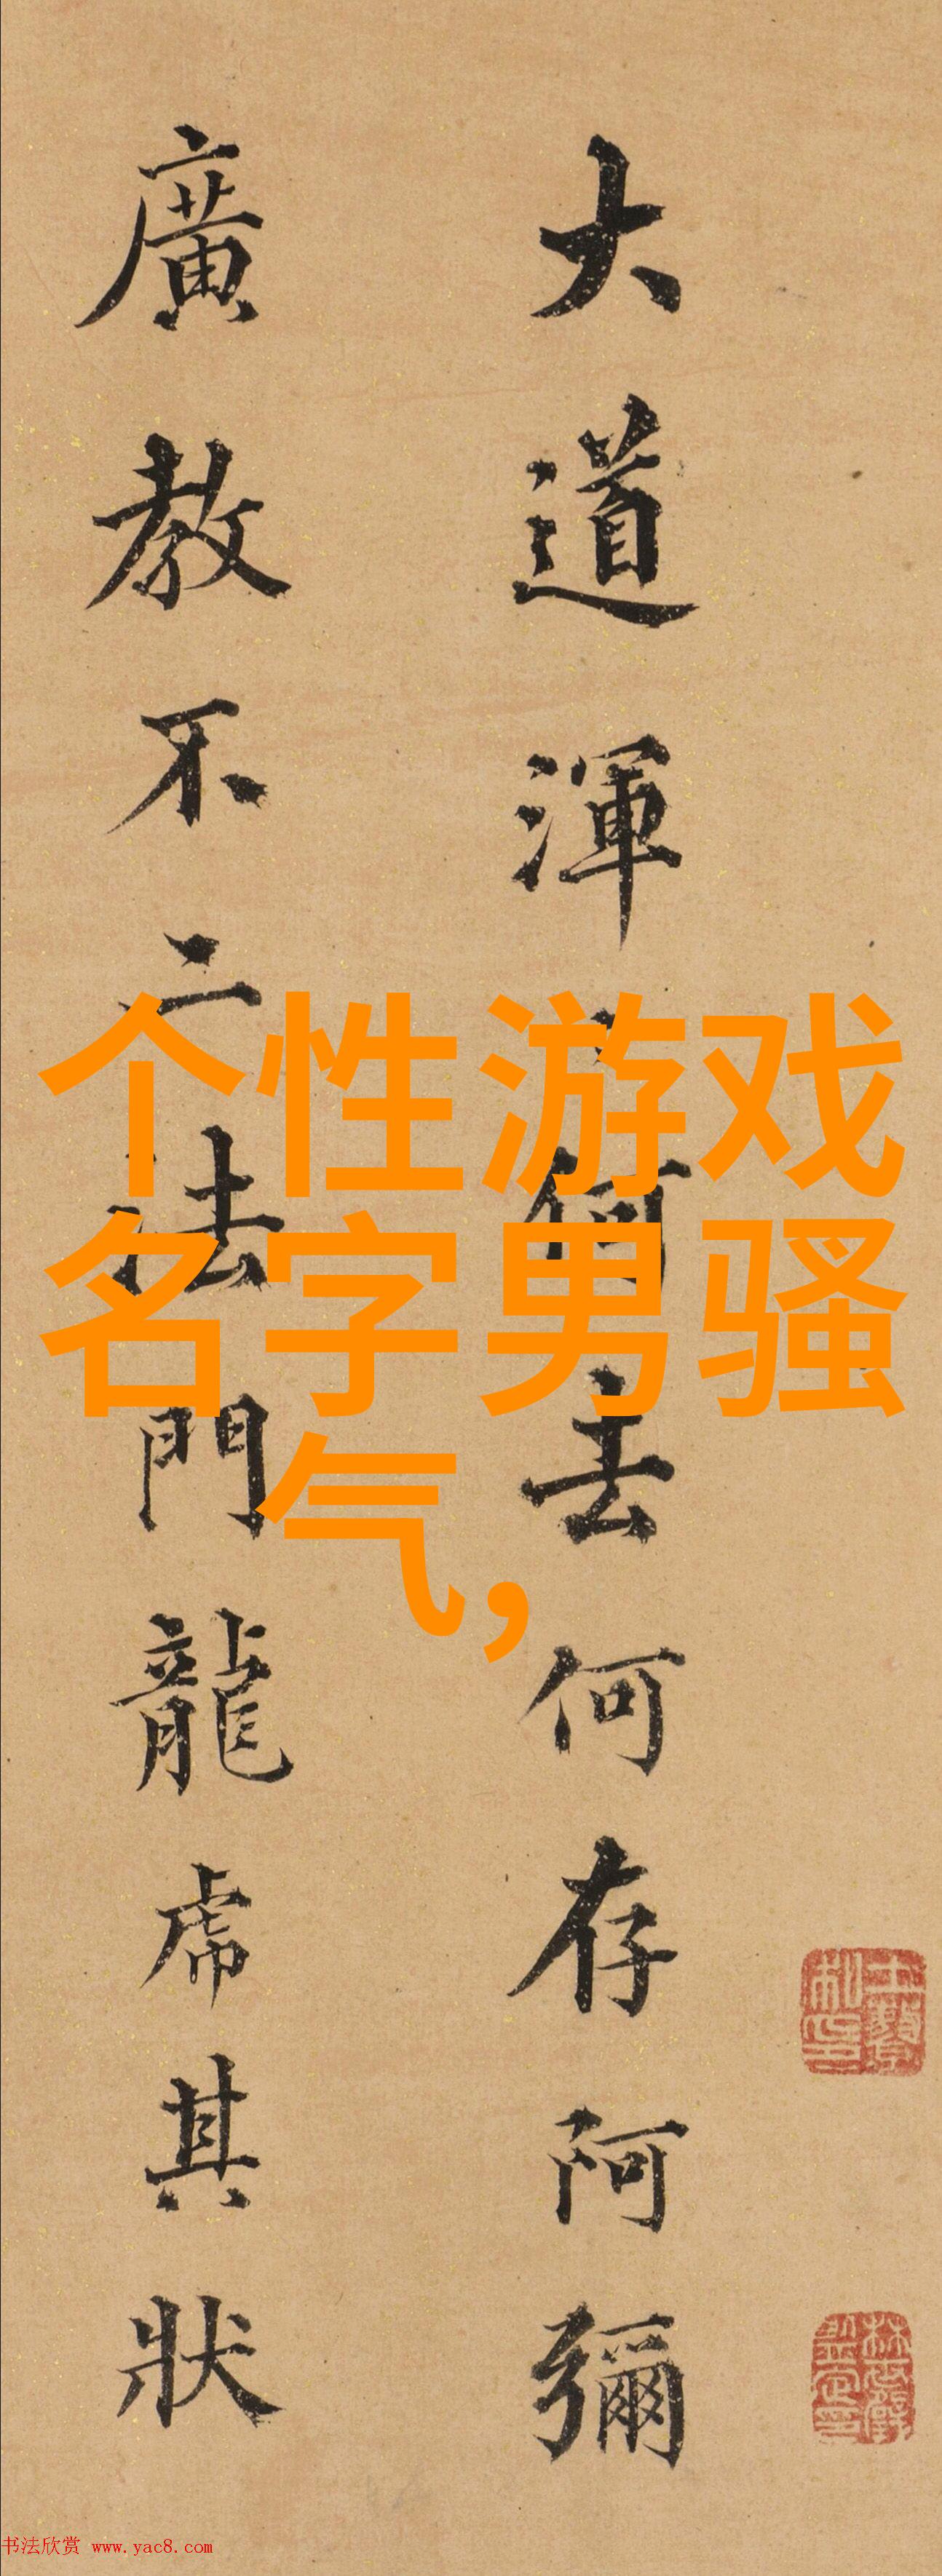 大道渾何去何存阿彌
廣教不二法門龍虎其狀
个性游戏
名字男骚
气,
书法欣赏 www.yac8.com